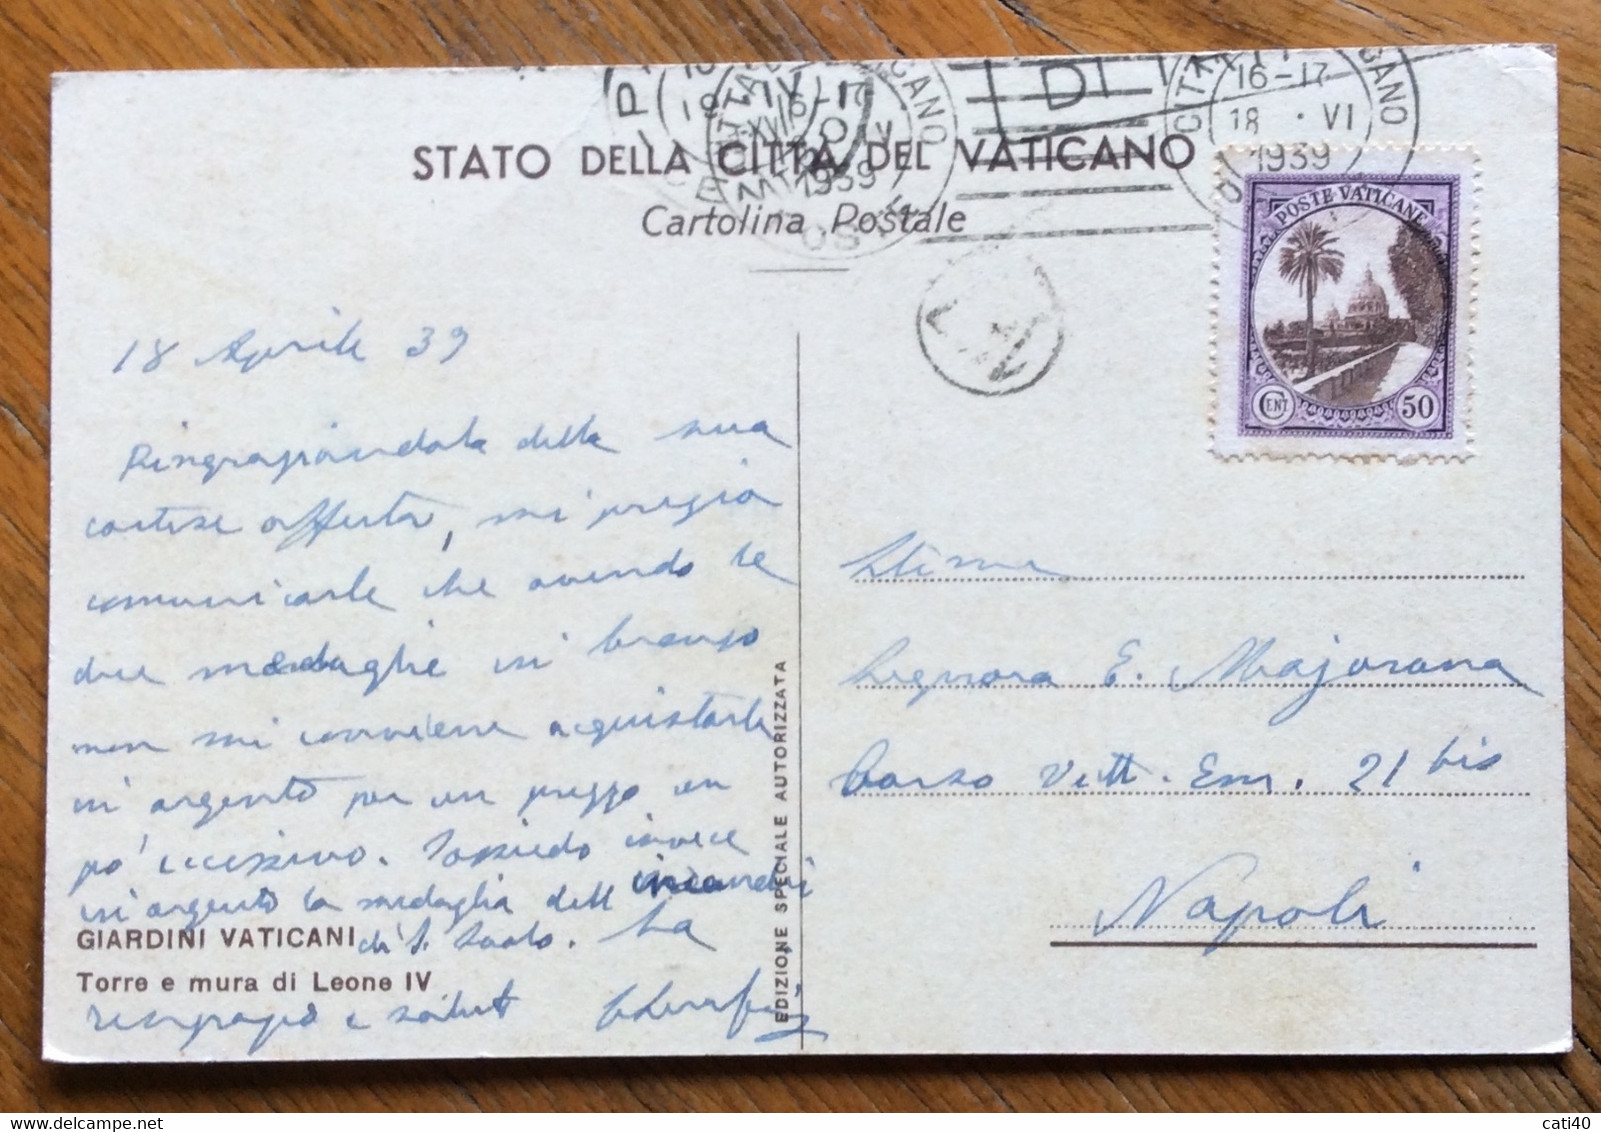 STATO DELLA CITTÀ DEL VATICANO
Cartolina Postale
CITTÀ
VATICANO
16-17
18 · VI
1939
DI
POSTE VATICANE
CENT
50
18 Aprile 39
Ringraziandola della sua
cortese offerta, mi pregio
comunicarle che avendo le
due medaglie in bronzo
non mi conviene acquistarle
in argento per un prezzo un
po' eccessivo. Possiedo invece
in argento la medaglia dell
di S. Paolo. La
ringrazio e saluto
GIARDINI VATICANI
Torre e mura di Leone IV
EDIZIONE SPECIALE AUTORIZZATA
Signora E. Majorana
Corso Vitt. Em. 21 bis
Napoli
cati40